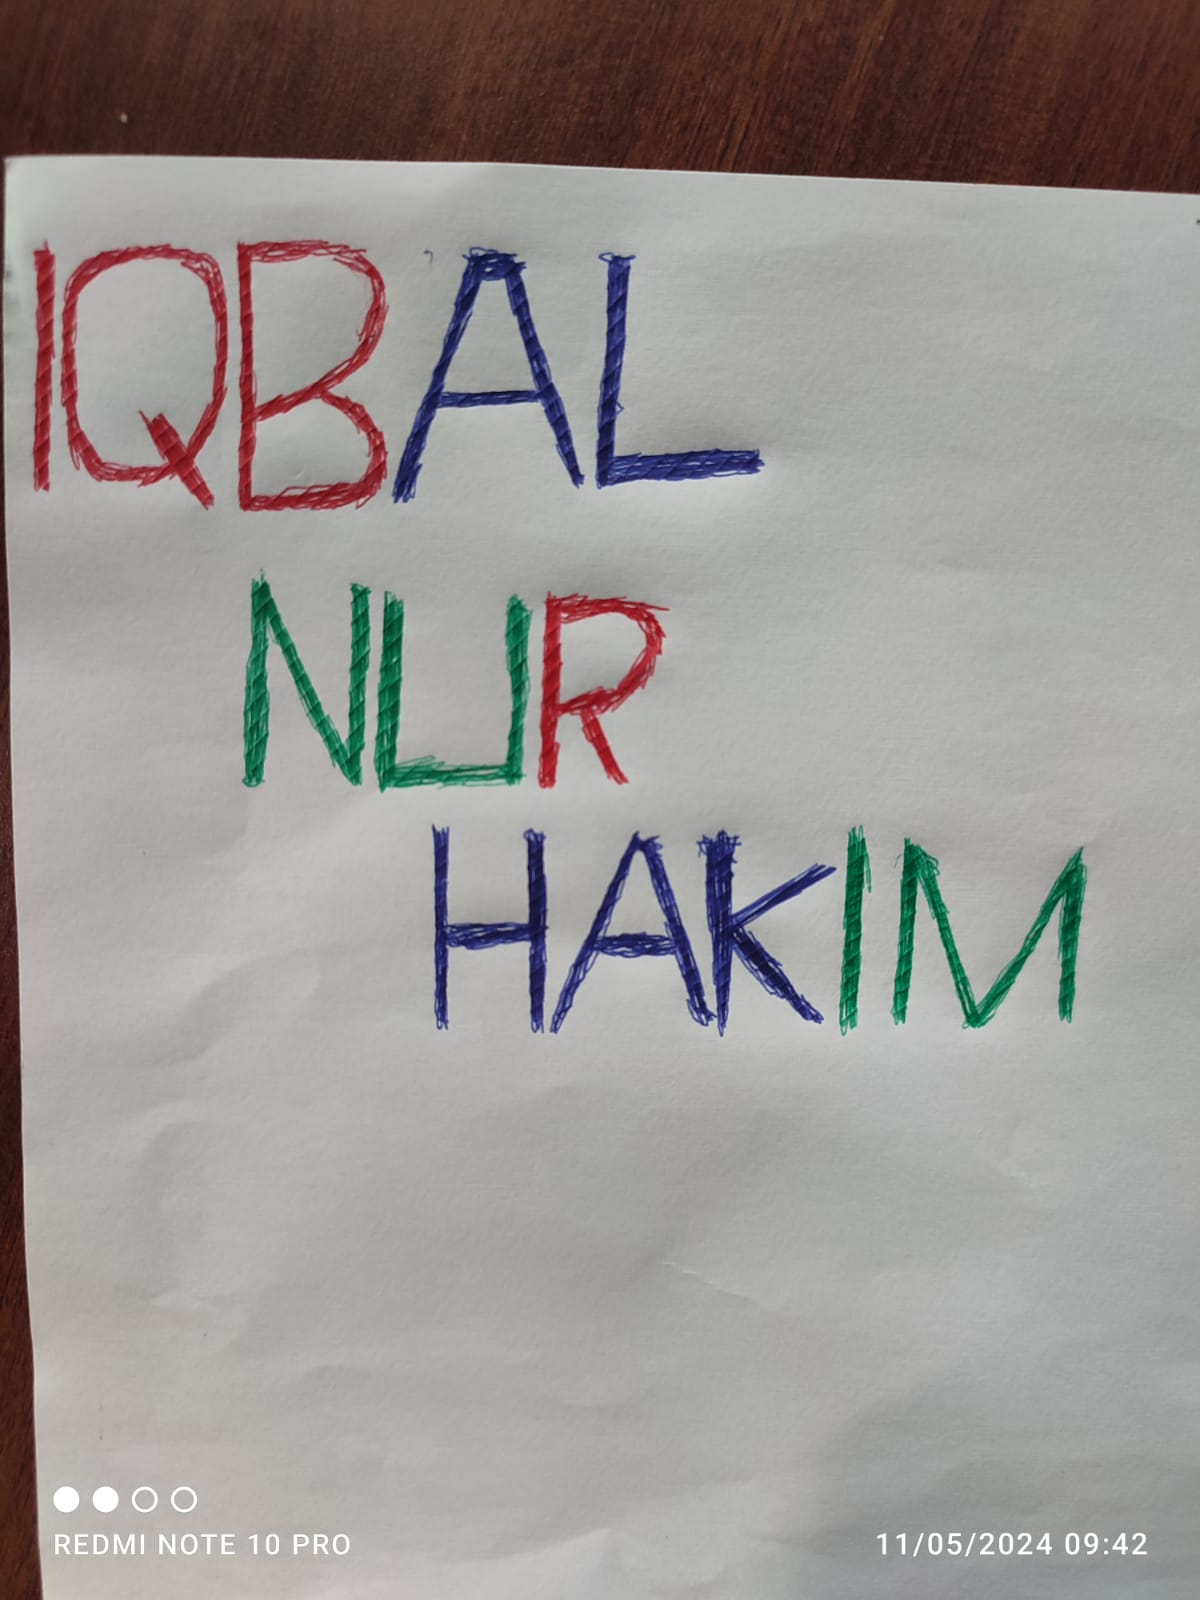 IQBAL
NUR
HAKIM
REDMI NOTE 10 PRO
11/05/2024 09:42